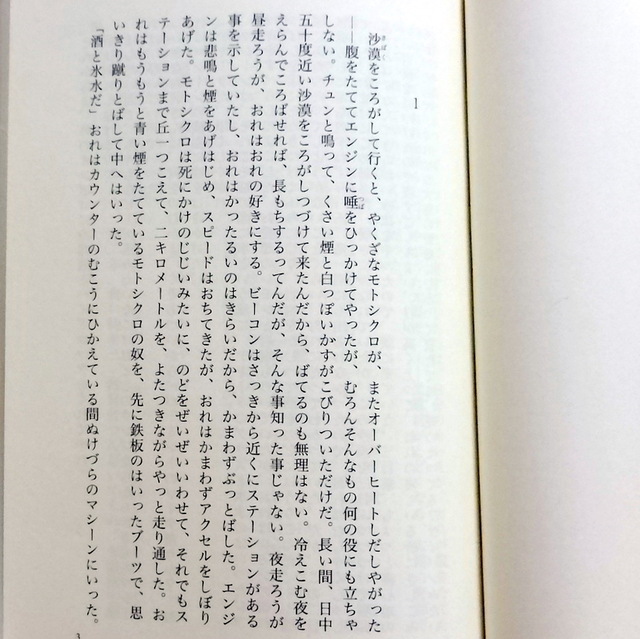 1
沙漠をころがして行くと、やくざなモトシクロが、またオーバーヒートしだしやがった
――腹をたててエンジンに唾をひっかけてやったが、むろんそんなもの何の役にも立ちゃ
しない。チュンと鳴って、くさい煙と白っぽいかすがこびりついただけだ。長い間、日中
五十度近い沙漠をころがしつづけて来たんだから、ばてるのも無理はない。冷えこむ夜を
えらんでころばせれば、長もちするってんだが、そんな事知った事じゃない。夜走ろうが
昼走ろうが、おれはおれの好きにする。ビーコンはさっきから近くにステーションがある
事を示していたし、おれはかったるいのはきらいだから、かまわずぶっとばした。エンジ
ンは悲鳴と煙をあげはじめ、スピードはおちてきたが、おれはかまわずアクセルをしぼり
あげた。モトシクロは死にかけのじじいみたいに、のどをぜいぜいいわせて、それでもス
テーションまで丘一つこえて、二キロメートルを、よたつきながらやっと走り通した。お
れはもうもうと青い煙をたてているモトシクロの奴を、先に鉄板のはいったブーツで、思
いきり蹴りとばして中へはいった。
「酒と氷水だ」おれはカウンターのむこうにひかえている間ぬけづらのマシーンにいった。
3